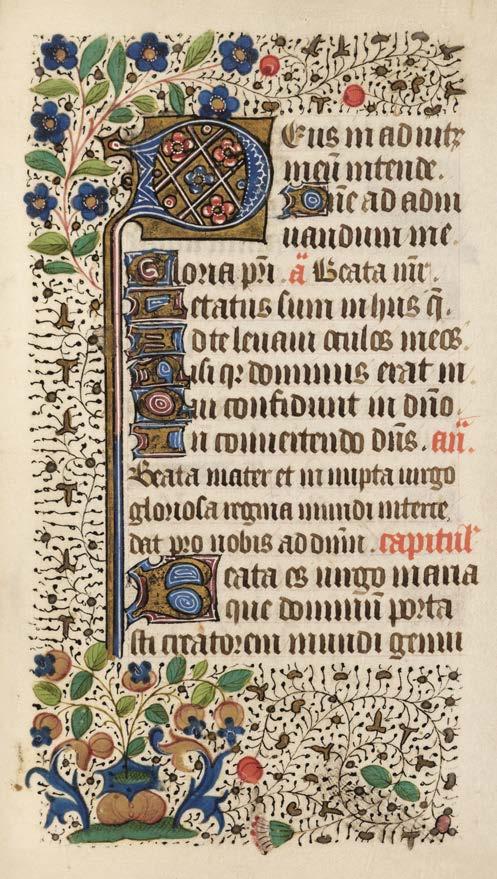 DEus in adiutꝫ
meū intende.
Dñe ad adiu
uandum me.
Gloria pr̄i. ā Beata mr̄.
Letatus sum in hiis q̄.
Ad te leuaui oculos meos.
Nisi qꝛ dominus erat in
Qui confidunt in dño.
In conuertendo dn̄s. añ.
Beata mater et innupta uirgo
gloriosa regina mundi interce
dat pro nobis ad dn̄m. capitul'
Beata es uirgo maria
que dominū porta
sti creatorem mundi genui